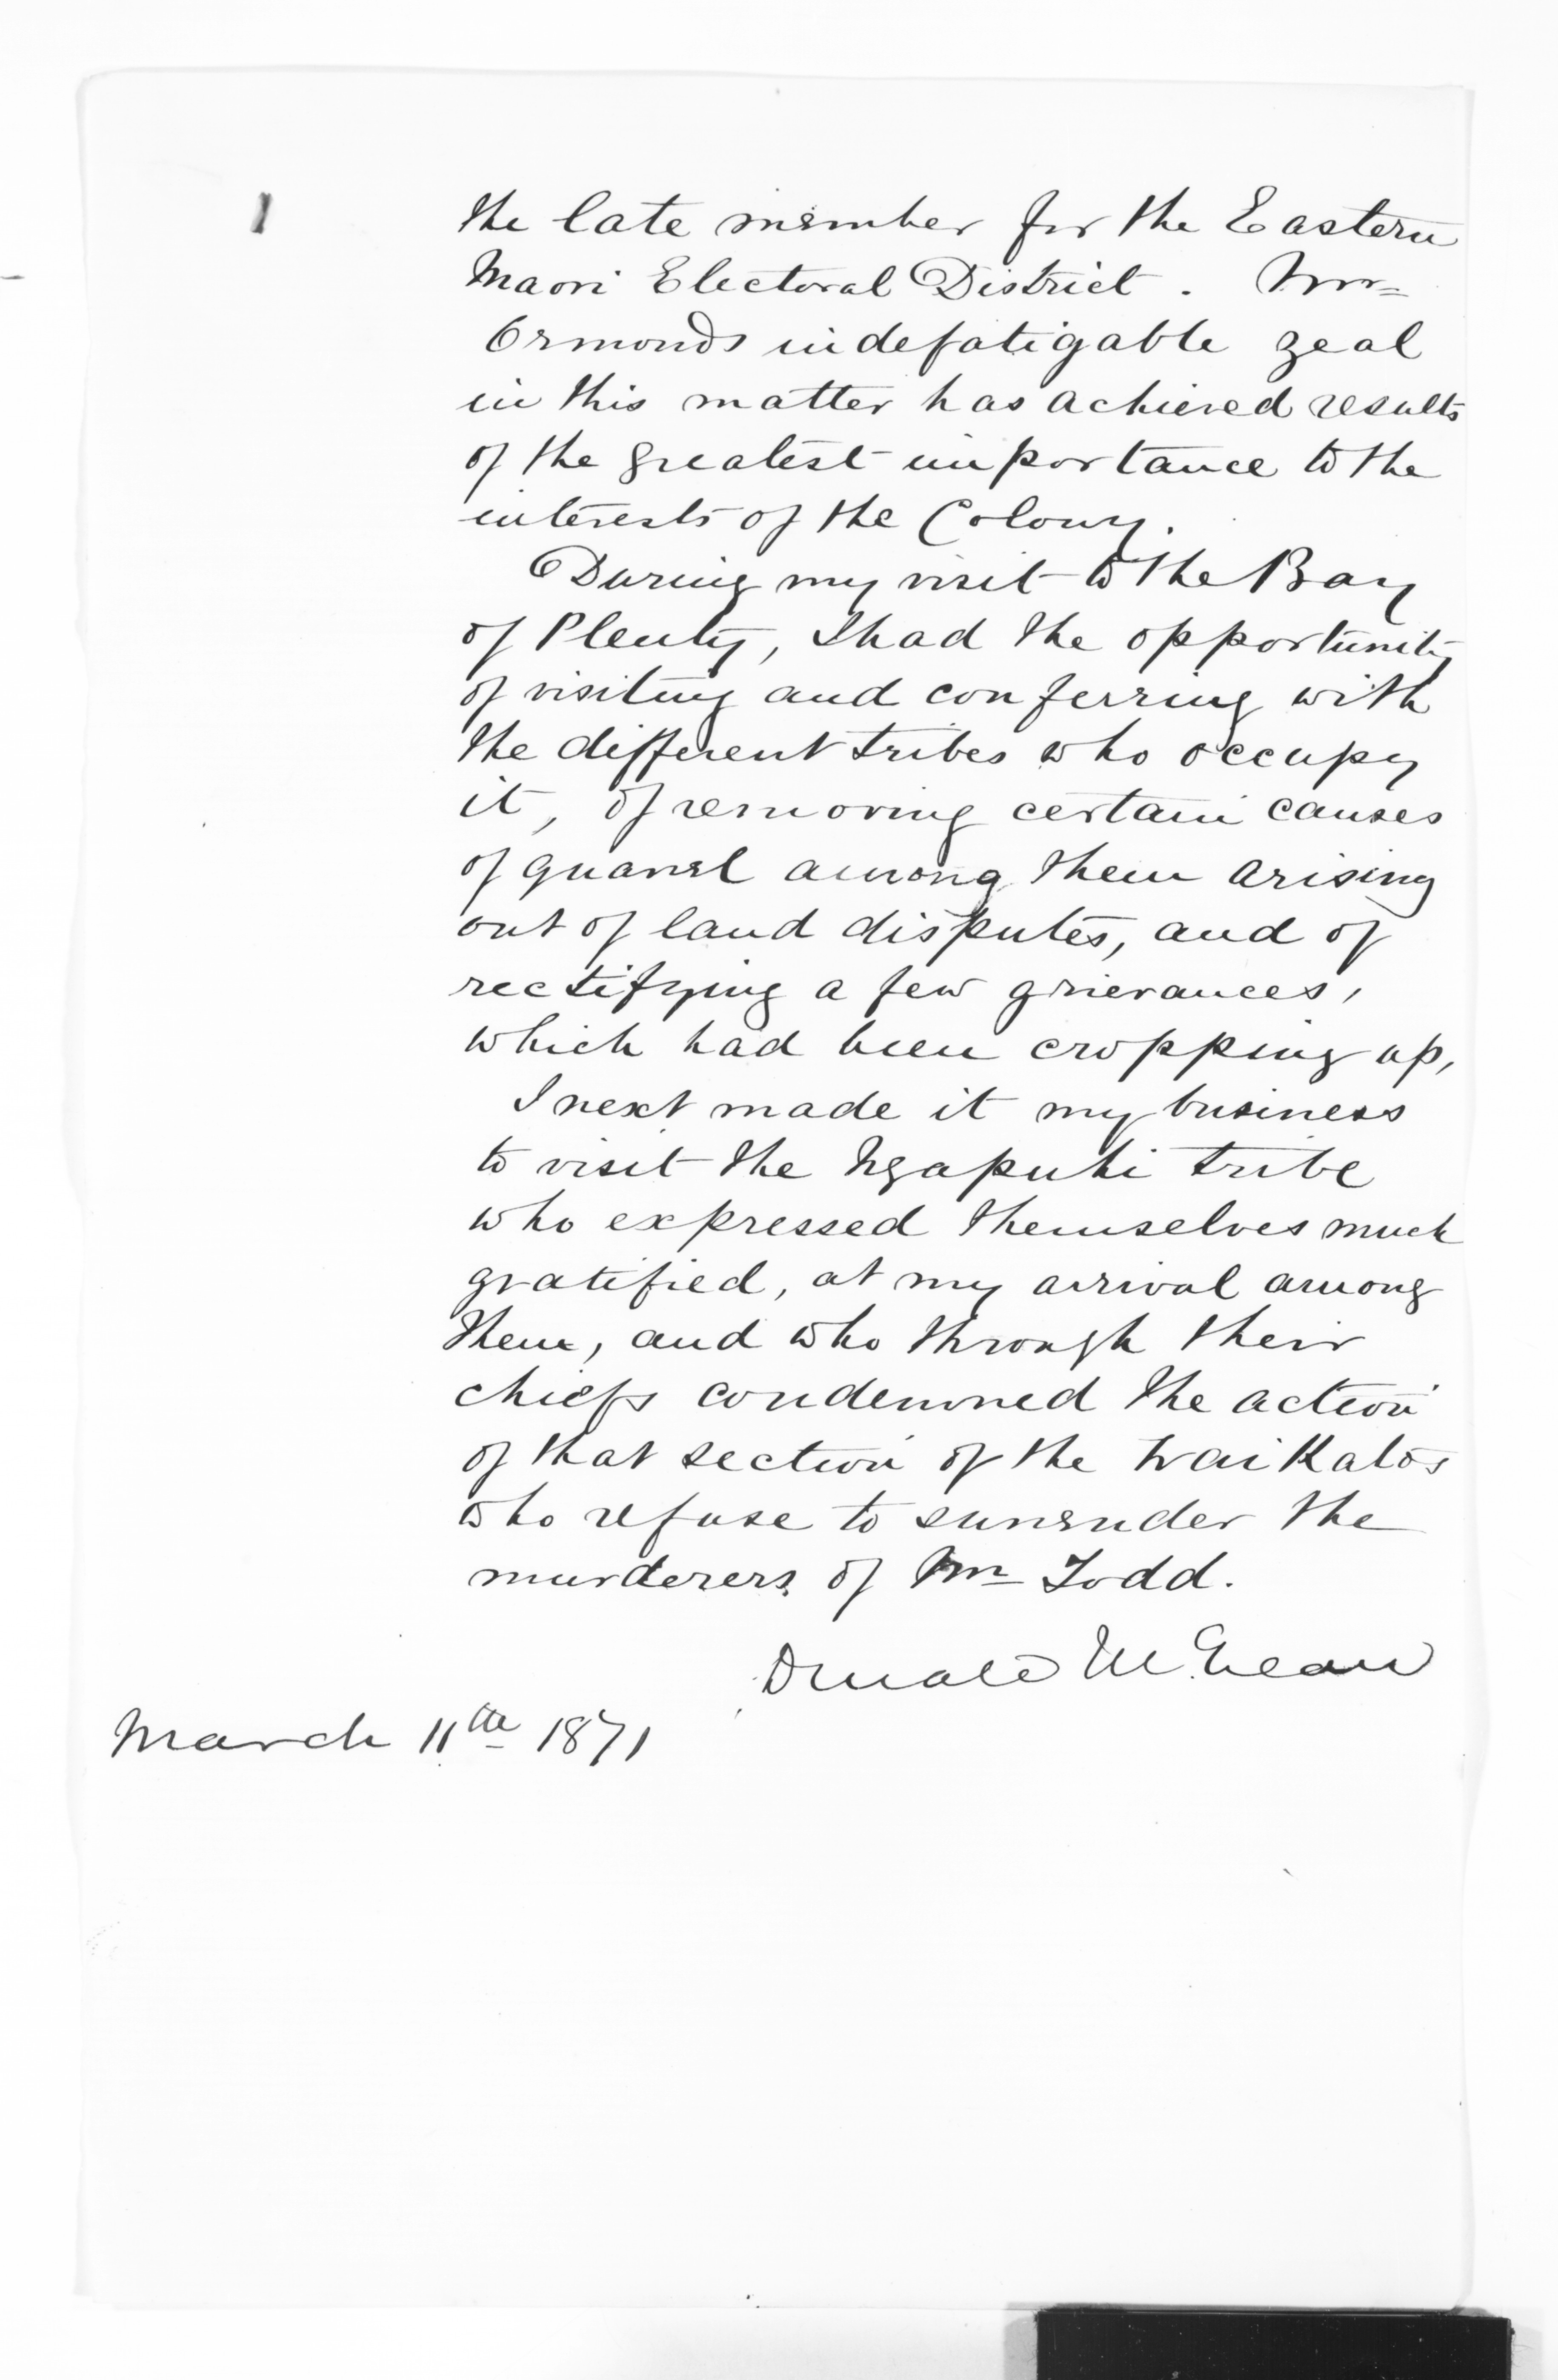 the late member for the Eastern
Maori Electoral District. Mr
Ormonds indefatigable zeal
in this matter has achieved results
of the greatest importance to the
interests of the Colony.
During my visit to the Bay
of Plenty, I had the opportunity
of visiting and conferring with
the different tribes who occupy
it, of removing certain causes
of quarrel among them arising
out of land disputes, and of
rectifying a few grievances,
which had been cropping up,
I next made it my business
to visit the Ngapuhi tribe
who expressed themselves much
gratified, at my arrival among
them, and who through their
chiefs condemned the action
of that section of the Waikatos
who refuse to surrender the
murderers of Mr Todd.
Donald McLean
March 11th 1871